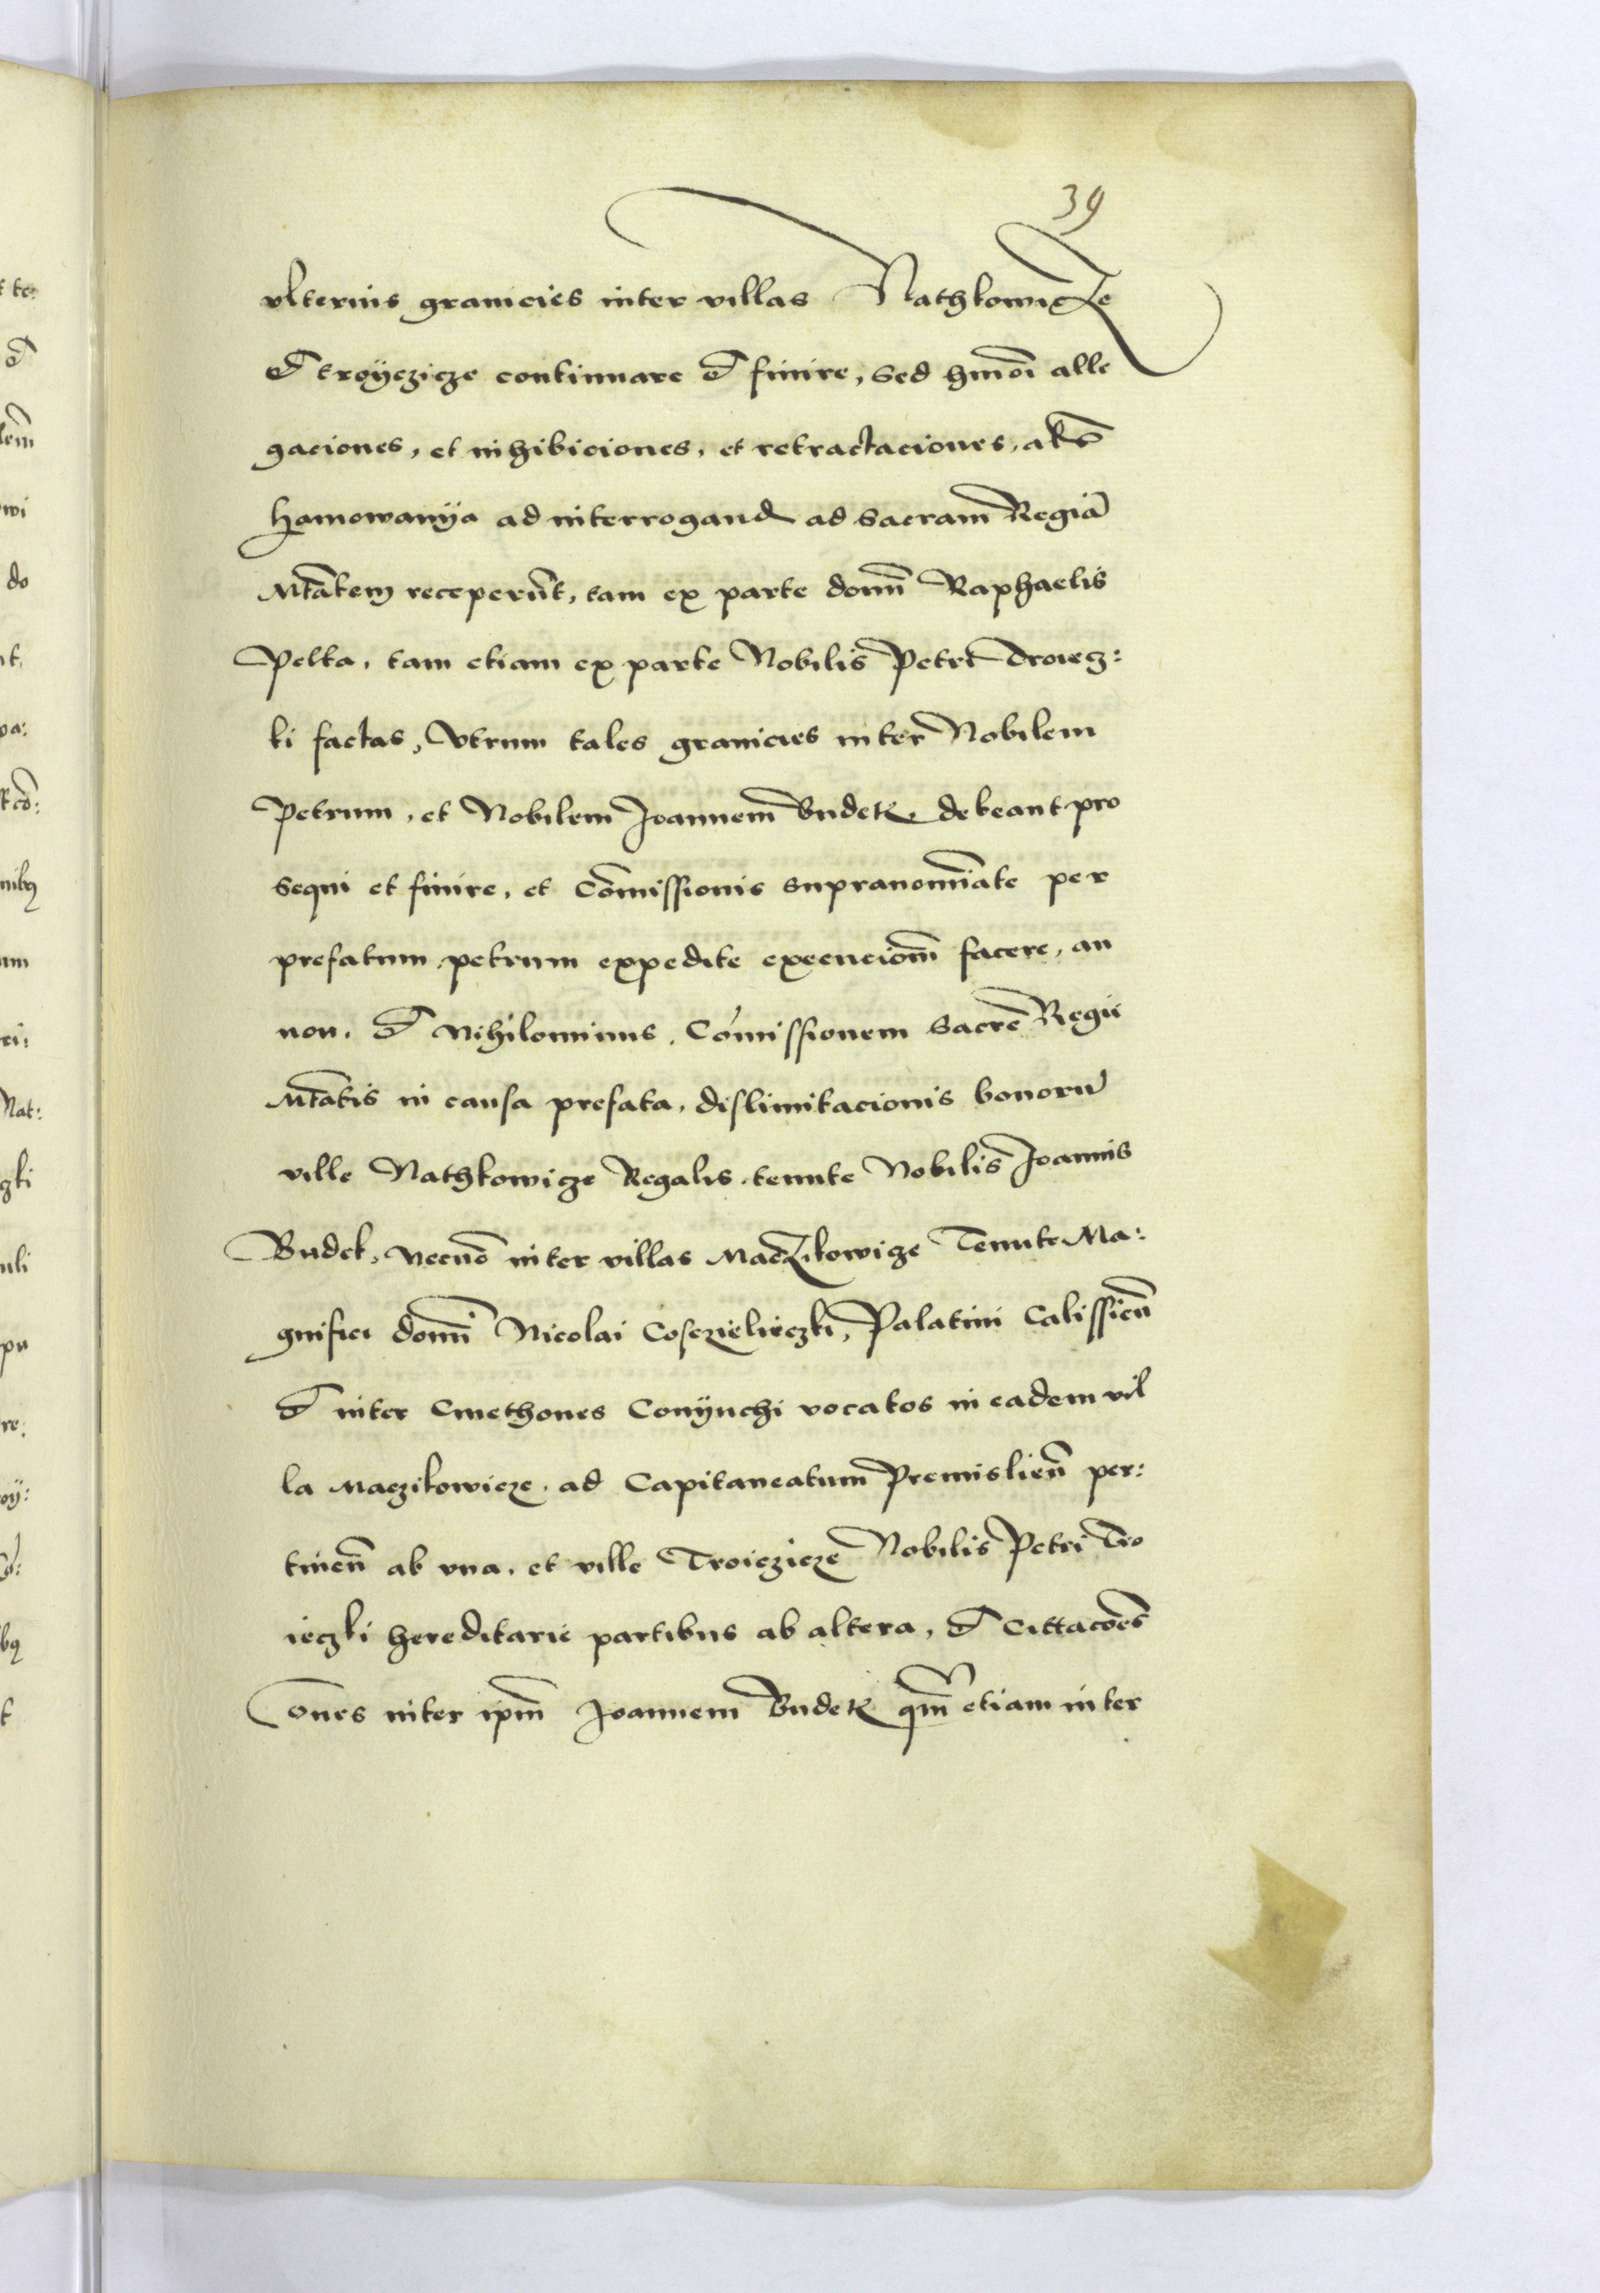 39
vlterius granicies inter villas Nathkowicze
et troÿczicze continuare et finire, sed hmōi alle
gaciones, et inhibiciones, et retractaciones,
hamowanÿa ad interrogand ad Sacram Regiā
Mtātem receperūt, tam ex parte domī Raphaelis
Pelka, tam etiam ex parte Nobilis Petri Droiecz:
ki factas, Vtrum tales granicies inter Nobilem
Petrum, et Nobilem Joannem Budek debeant pro
sequi et finire, et Cōmissionis supranomīate per
prefatum petrum expedite execucionē facere, an
non. et Nihilominus, Cōmissionem Sacre Regie
Mtātis in causa prefata, dislimitacionis bonorū
ville Nathkowicze Regalis, tenute Nobilis Joannis
Budek, necnō inter villas Maczikowicze Tenute Ma:
gnifici domī Nicolai Cosczielieczki, Palatini Calissień
et inter Cmethones Conÿuchi vocatos in eadem vil
la Maczikowicze, ad Capitaneatum Premislień per:
tineñ ab vna, et ville Troiczicze Nobilis Petri Dro
ieczki hereditarie partibus ab altera, et Cittacōes
ōnes inter ipm̄ Joannem Budek qm̄ etiam inter